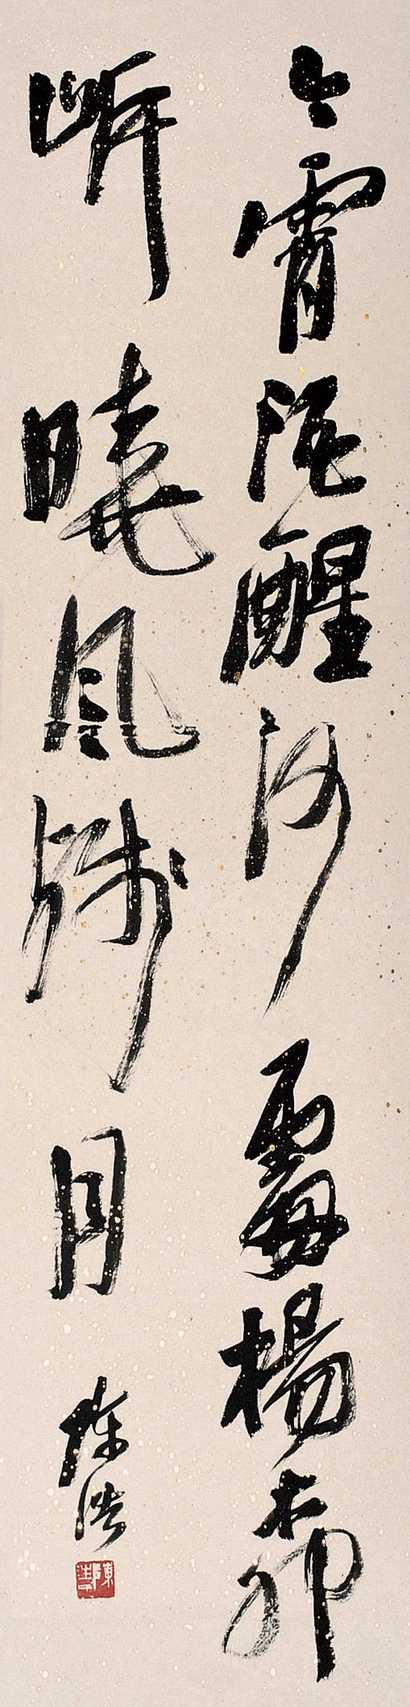 今宵酒醒何處楊柳
岸曉風殘月
陳浩